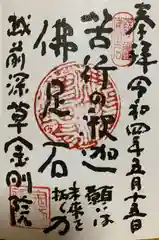 奉拝 令和四年五月十五日
苦行の釈迦
佛足石
願いは
未来を
拓く力
越前深草金剛院